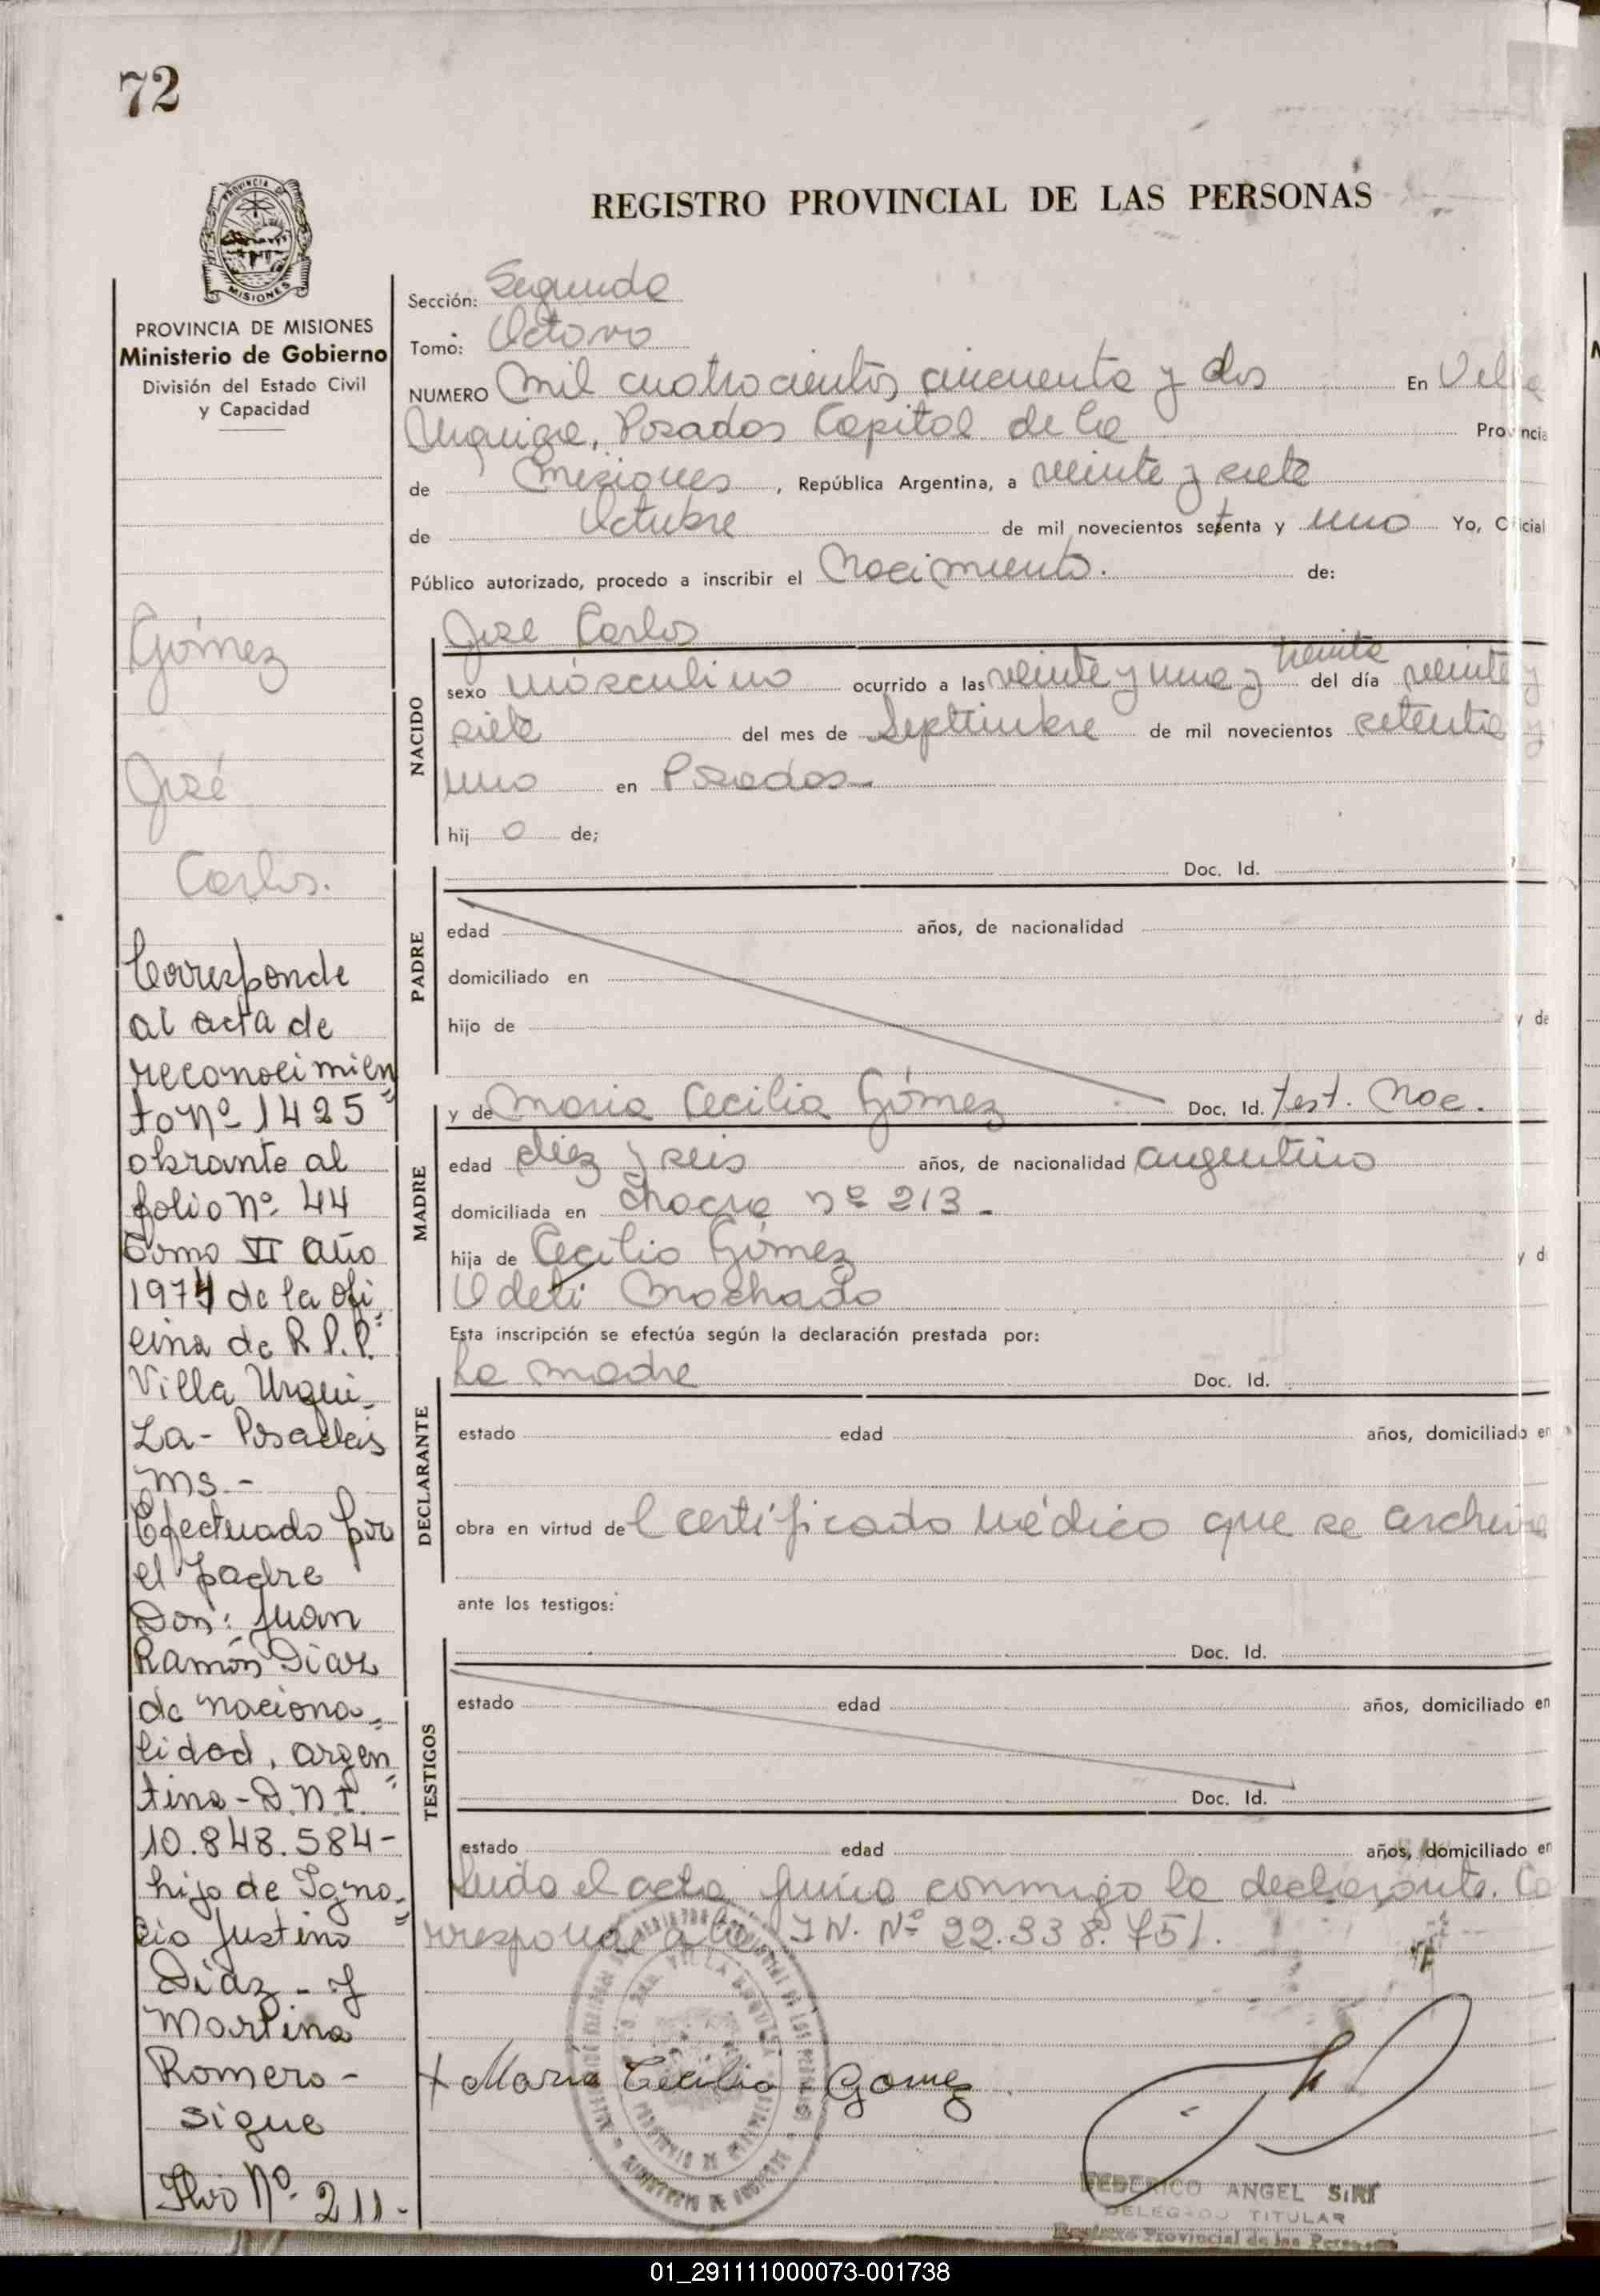 72
REGISTRO PROVINCIAL DE LAS PERSONAS
PROVINCIA DE
MISIONES
PROVINCIA DE MISIONES
Ministerio de Gobierno
División del Estado Civil
y Capacidad
Gómez
José
Carlos.
Corresponde
al acta de
reconocimien
to Nº 1425
obrante al
folio Nº 44
tomo VI año
1974 de la ofi
cina de R.P.P.
Villa Urqui
za - Posadas
Ms.-
Efectuado por
el padre
Don: Juan
Ramón Diaz
de naciona
lidad, argen
tina - D.N.I.
10.848.584-
hijo de Igna
cio Justino
Díaz - y
Martina
Romero -
sigue
Nº 211-
Sección: Segunda
Tomo: Octavo
NUMERO Mil cuatrocientos cincuenta y dos En Villa
Urquiza, Posadas Capital de la Provincia
de Misiones, República Argentina, a veinte y siete
de Octubre de mil novecientos setenta y uno Yo, Oficial
Público autorizado, procedo a inscribir el Nacimiento. de:
NACIDO
Jose Carlos
sexo masculino ocurrido a las veinte y una y treinta del día veinte y
siete del mes de Septiembre de mil novecientos setenta y
uno en Posadas-
hij o de;
PADRE
Doc. Id.
edad años, de nacionalidad
domiciliado en
hijo de y de
MADRE
y de Maria Cecilia Gómez Doc. Id. Test. Nac.
edad diez y seis años, de nacionalidad argentina
domiciliada en chacra nº 213.-
hija de Cecilio Gómez y d
Odeti Machado
Esta inscripción se efectúa según la declaración prestada por:
DECLARANTE
La madre Doc. Id.
estado edad años, domiciliado en
obra en virtud del certificado médico que se archiva
ante los testigos:
TESTIGOS
Doc. Id.
estado edad años, domiciliado en
Doc. Id.
estado edad años, domiciliado en
Leida el acta firma conmigo la declarante. Co
rresponde a la I N. Nº 22.338.751.
VILLA URQUIZA
PROVINCIA DE MISIONES
MINISTERIO DE GOBIERNO
x Maria Cecilia Gomez
FEDERICO ANGEL SIRI
DELEGADO TITULAR
Registro Provincial de las Personas
01_291111000073-001738